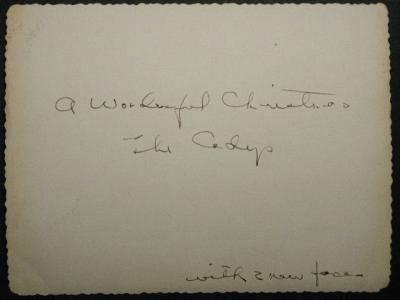 A Wonderful Christmas
The Cadys
with 2 new faces